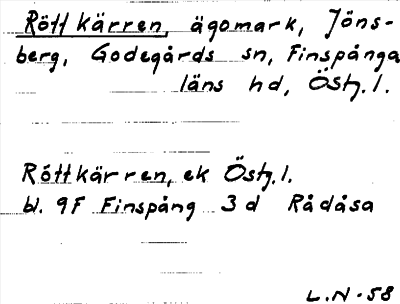 Röttkärren, ägomark, Jöns-
berg, Godegårds sn, Finspånga
läns hd, Östg. l.
Röttkärren, ek Östg. l.
bl. 9F Finspång 3 d Rådåsa
L.N-58